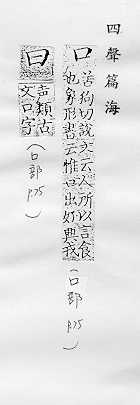 四聲篇海
口 苦狗切說文云人所以言食
也象形書云惟口出好興戎
(口部 P.75)
曰 聲類古
文口字
(口部 P.75)